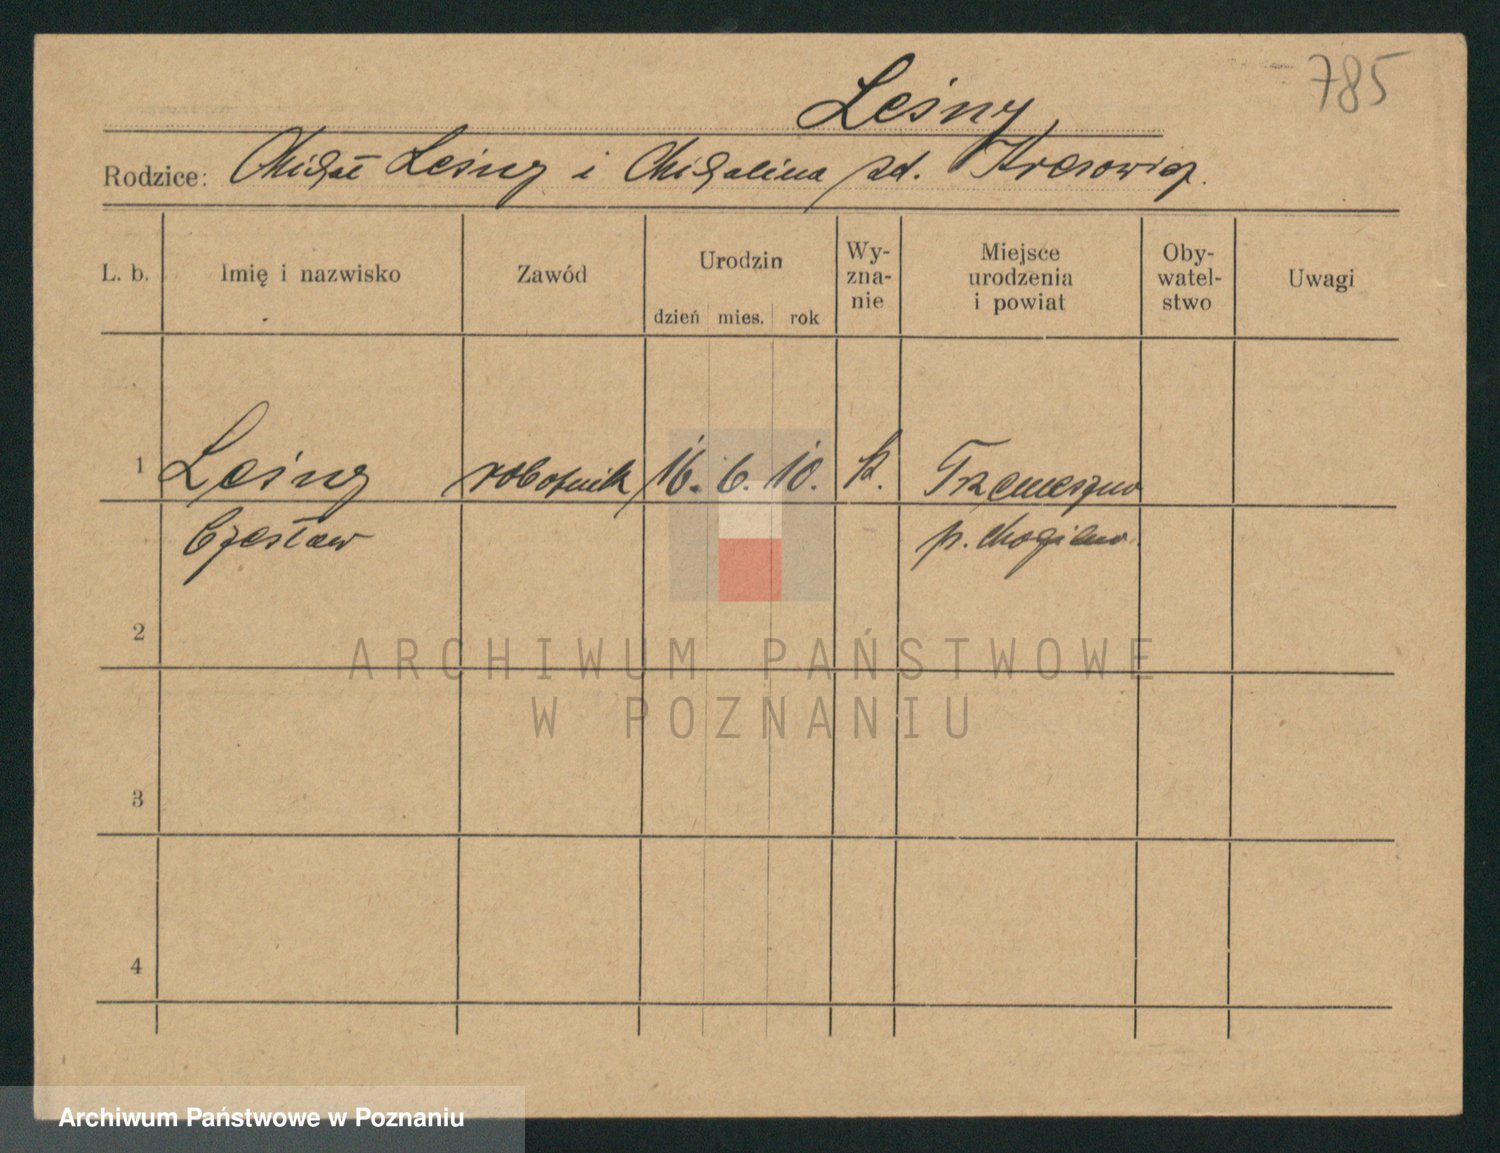 785
Leśny
Rodzice: Michał Leśny i Michalina zd.
L. b.
Imię i nazwisko
Zawód
Urodzin
dzień mies. rok
Wy-
zna-
nie
Miejsce
urodzenia
i powiat
Oby-
watel-
stwo
Uwagi
1 Leśny robotnik 16. 6. 10. k. Trzemeszno
Czesław p. Mogilno
2
3
4
ARCHIWUM PAŃSTWOWE
W POZNANIU
Archiwum Państwowe w Poznaniu